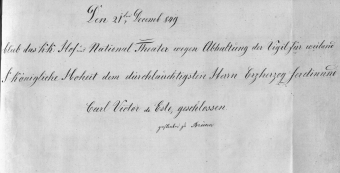 Den 21ten Decemb 849
blieb das kk Hof- u National Theater wegen Abhaltung der Vigil für weiland
S Königliche Hoheit dem durchlauchtigsten Herrn Erzherzog Ferdinand
Carl Victor de Este, geschlossen
gestorben zu